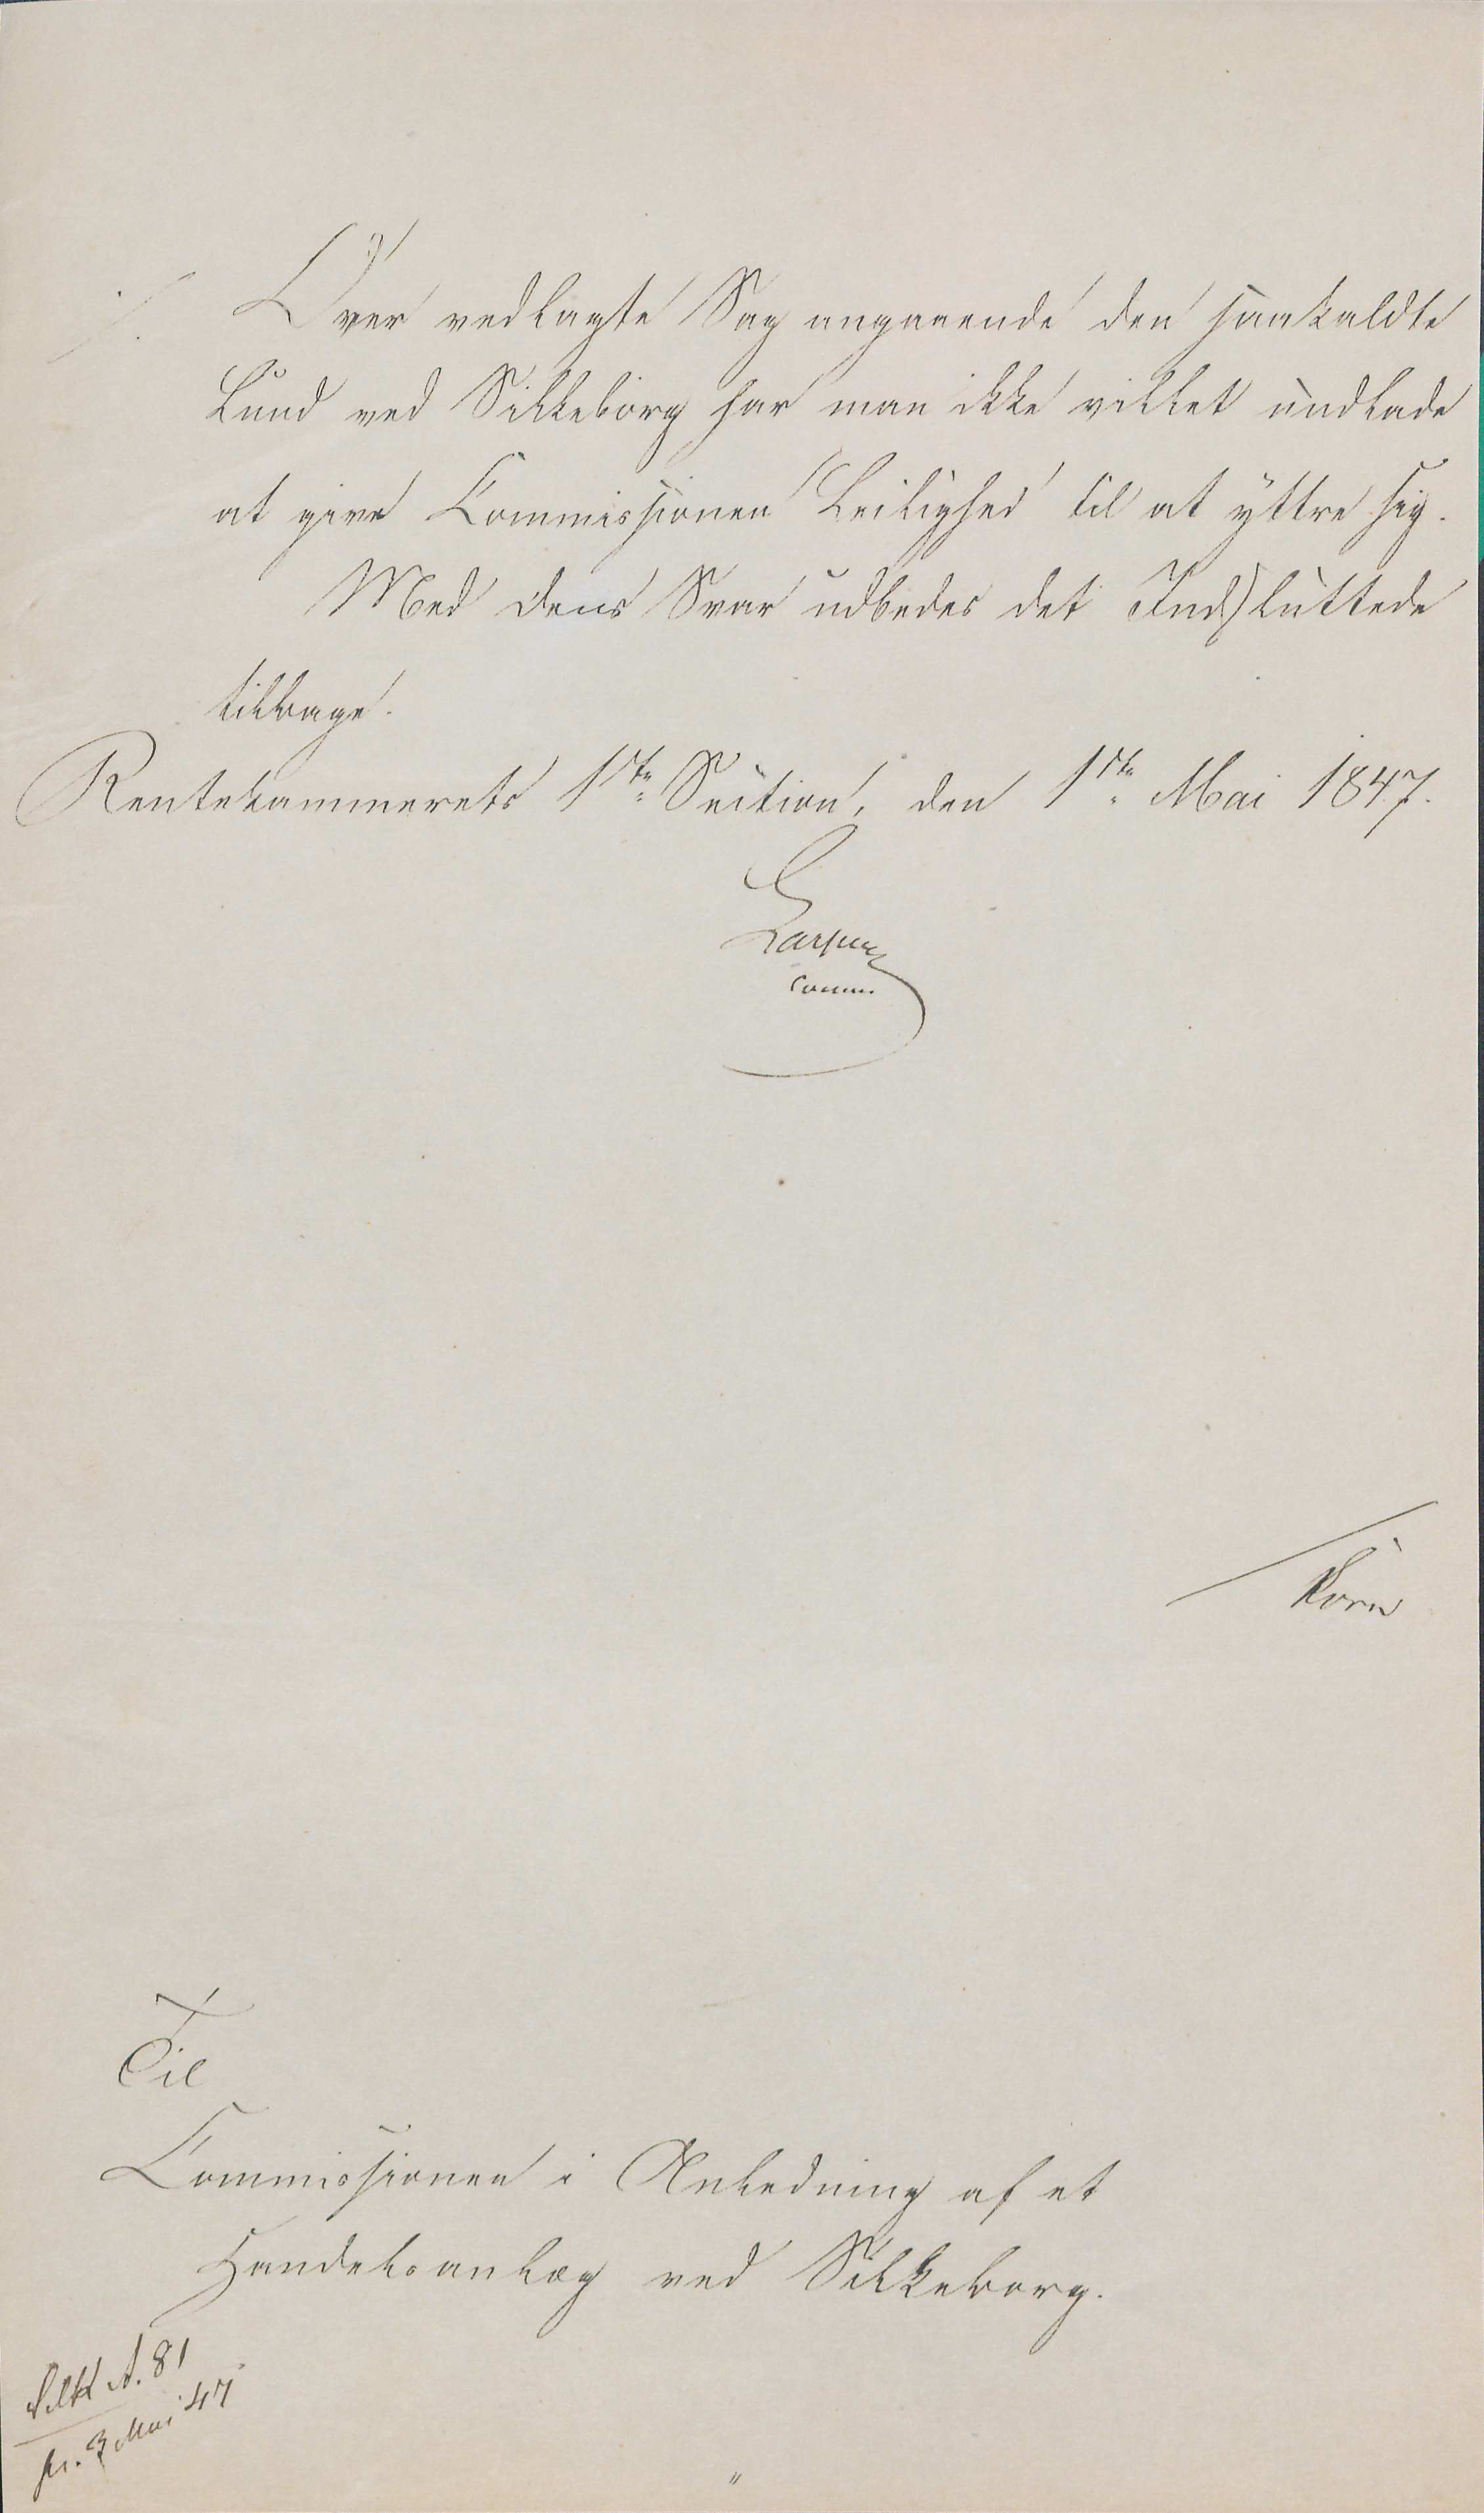 ./.
Over vedlagte Sag angaaende den saakaldte
Lund ved Silkeborg har man ikke villet undlade
at give Commissionen Leilighed til at yttre sig.
Med dens Svar udbedes det Indsluttede
tilbage.
Rentekammerets 1ste Section, den 1ste Mai 1847.
Larsen
comm.
Korn
Til
Commissionen i Anledning af et
Handelsanlæg ved Silkeborg.
Silk A. 81
pr. 3 Mai 47